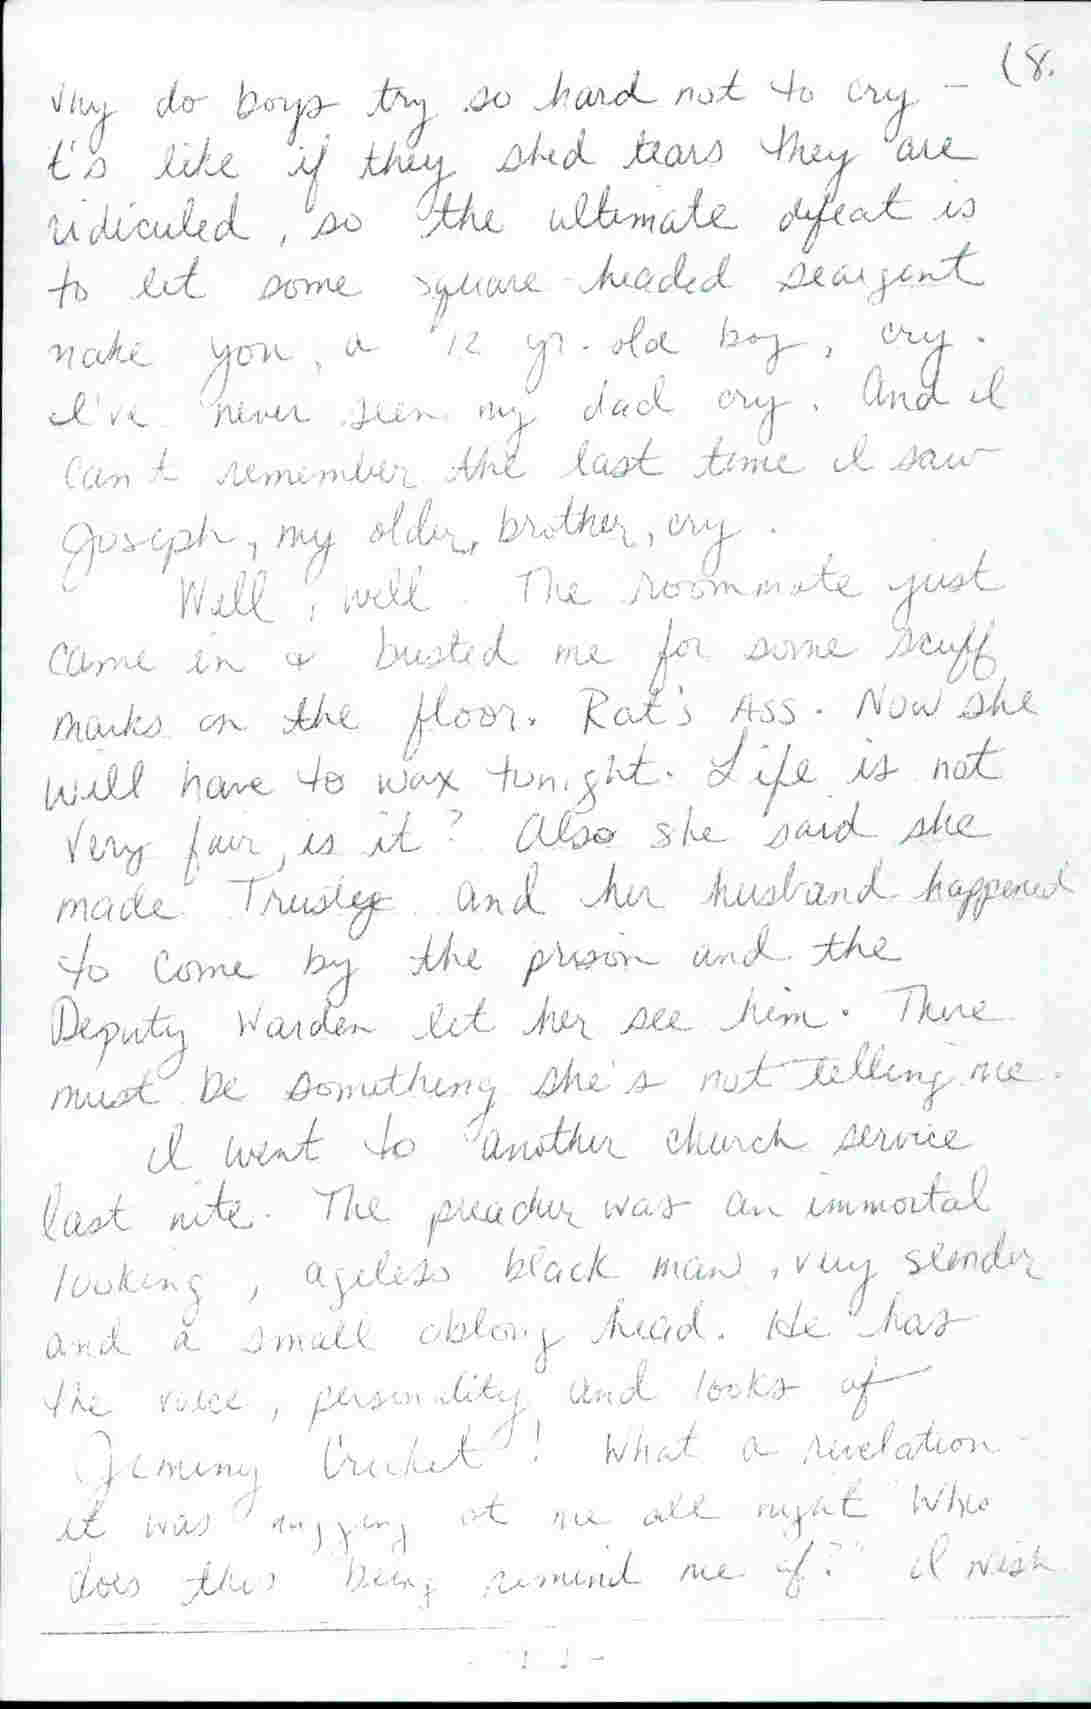 (8.
why do boys try so hard not to cry -
t's like if they shed tears they are
ridiculed, so the ultimate defeat is
to let some square-headed seargent
make you, a 12 yr. old boy, cry.
I've never seen my dad cry. And I
can't remember the last time I saw
Joseph, my older, brother, cry.
Well, well. The roommate just
came in & busted me for some scuff
marks on the floor. Rat's ASS. Now she
will have to wax tonight. Life is not
very fair, is it? Also she said she
made Trustee and her husband happened
to come by the prison and the
Deputy Warden let her see him. There
must be something she's not telling me.
I went to another church service
last nite. The preacher was an immortal
looking, ageless black man, very slender
and a small oblong head. He has
the voice, personality and looks of
Jeminy Cricket! What a revelation -
it was nagging at me all night "Who
does this being remind me of?" I wish